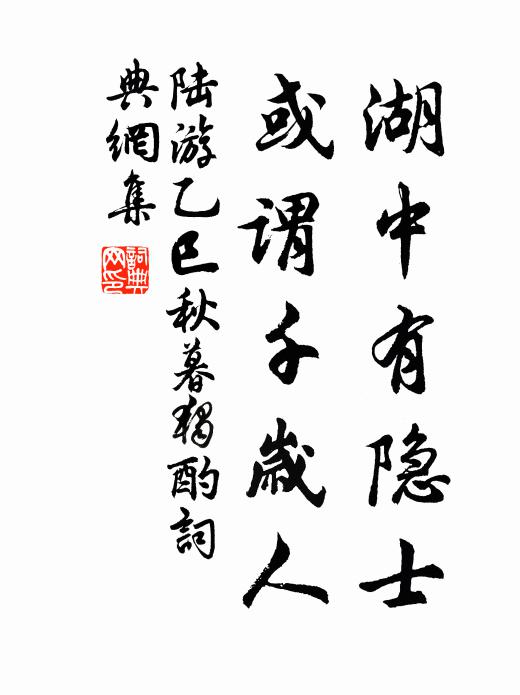 湖中有隐士
或谓千歲人
陆游乙巳秋暮獨酌詞
典網集
詞典网印